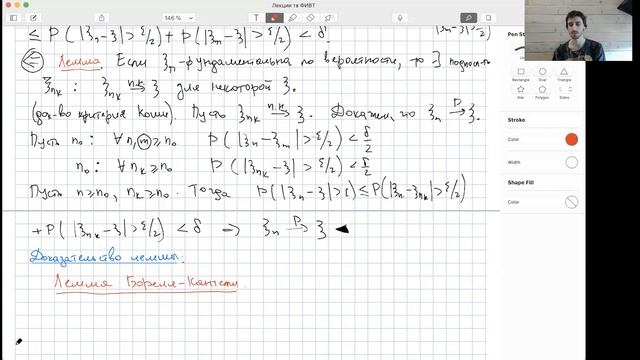 Лекции тв ФИВТ
146 %
≤ P( |ξn-ξ|>ε/2) + P(|ξm-ξ|>ε/2) < δ.
⇐ Лемма. Если ξn-фундаментальна по вероятности, то ∃ подпосл
ξnk : ξnk п.н.→ ξ для некоторой ξ.
(док-во критерия Коши). Пусть ξnk п.н.→ ξ. Докажем, что ξn P→ ξ.
Пусть n₀: ∀ n,m ≥ n₀ P( |ξn-ξm|>ε/2) < δ/2
n₀: ∀ nk ≥ n₀ P( |ξnk-ξ|>ε/2) < δ/2
Пусть n ≥ n₀, nk ≥ n₀. Тогда P( |ξn-ξ|>ε) ≤ P(|ξn-ξnk|>ε/2)
+ P( |ξnk-ξ|>ε/2) < δ ⇒ ξn P→ ξ ◄
Доказательство леммы:
Лемма Бореля-Кантелли.
Pen St
Rectangle
Oval
Triangle
Star
Polygon
Stroke
Color
Width
Shape Fill
Color